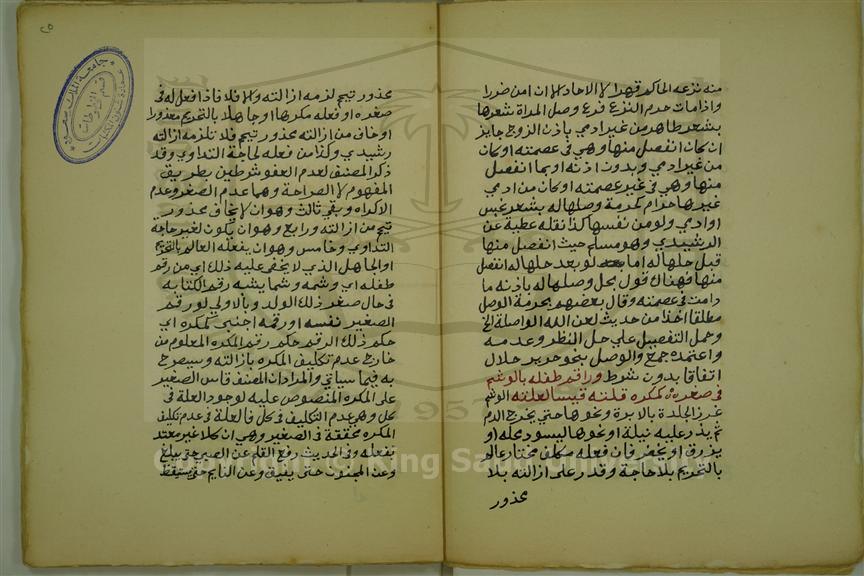 منه نزعه الحاكم قهرا لا الاحاد لا ان امن ضررا
واذا مات حرم النزع فرع وصل المراة شعرها
بشعر طاهر من غير ادمي باذن الزوج جايز
ان كان انفصل منها وهي في عصمته او كان
من غير ادمي وبدون اذنه او بما انفصل
منها وهي في غير عصمته او كان من ادمي
غيرها حرام كحرمة وصلها له بشعر نجس
او ادمي ولو من نفسها كذا نقله عطية عن
الرشيدي وهو مسلم حيث انفصل منها
قبل حلها له اما لو بعد حلها له انفصل
منها فهناك قول بحل وصلها له باذنه ما
دامت في عصمته وقال بعضهم بحرمة الوصل
مطلقا اخذا من حديث لعن الله الواصلة الخ
وحمل التفصيل على حل النظر وعدمه
واعتمده جمع والوصل بنحو حرير حلال
اتفاقا بدون شرط وراقم طفله بالوشم
في صغره كمكره قلته قيسا لعلته الوشم
غرز الجلدة بالابرة ونحوها حتى يخرج الدم
ثم يذر عليه نيلة او نحوها ليسود محله او
يزرق او يخضر فان فعله مكلف مختار عالم
بالتحريم بلا حاجة وقدر على ازالته بلا
محذور
محذور تيمم لزمه ازالته والا فلا فاذا فعل له في
صغره او فعله مكرها او جاهلا بالتحريم معذورا
او خاف من ازالته محذور تيمم فلا تلزمه ازالته
رشيدي وكذا من فعله لحاجة التداوي وقد
ذكر المصنف لعدم العفو شرطين بطريق
المفهوم لا الصراحة وهما عدم الصغر وعدم
الاكراه وبقي ثالث وهو ان لا يخاف محذور
تيمم من ازالته ورابع وهو ان يكون لغير حاجة
التداوي وخامس وهو ان يفعله العالم بالتحريم
او الجاهل الذي لا يخفى عليه ذلك اي من رقم
طفله اي وشمه وشما يشبه رقم الكتابه
في حال صغر ذلك الولد وبالاولى لو رقم
الصغير نفسه او رقمه اجنبي كمكره اي
حكم ذلك الرقم حكم رقم المكره المعلوم من
خارج عدم تكليف المكره بازالته وسيصرح
به فيما سياتي والمراد ان المصنف قاس الصغير
على المكره المنصوص عليه لوجود العلة في
كل وهو عدم التكليف في كل فالعلة في عدم تكليف
المكره محققة في الصغير وهي ان كلا غير معتد
بفعله وفي الحديث رفع القلم عن الصبي حتى يبلغ
وعن المجنون حتى يفيق وعن النايم حتى يستيقظ